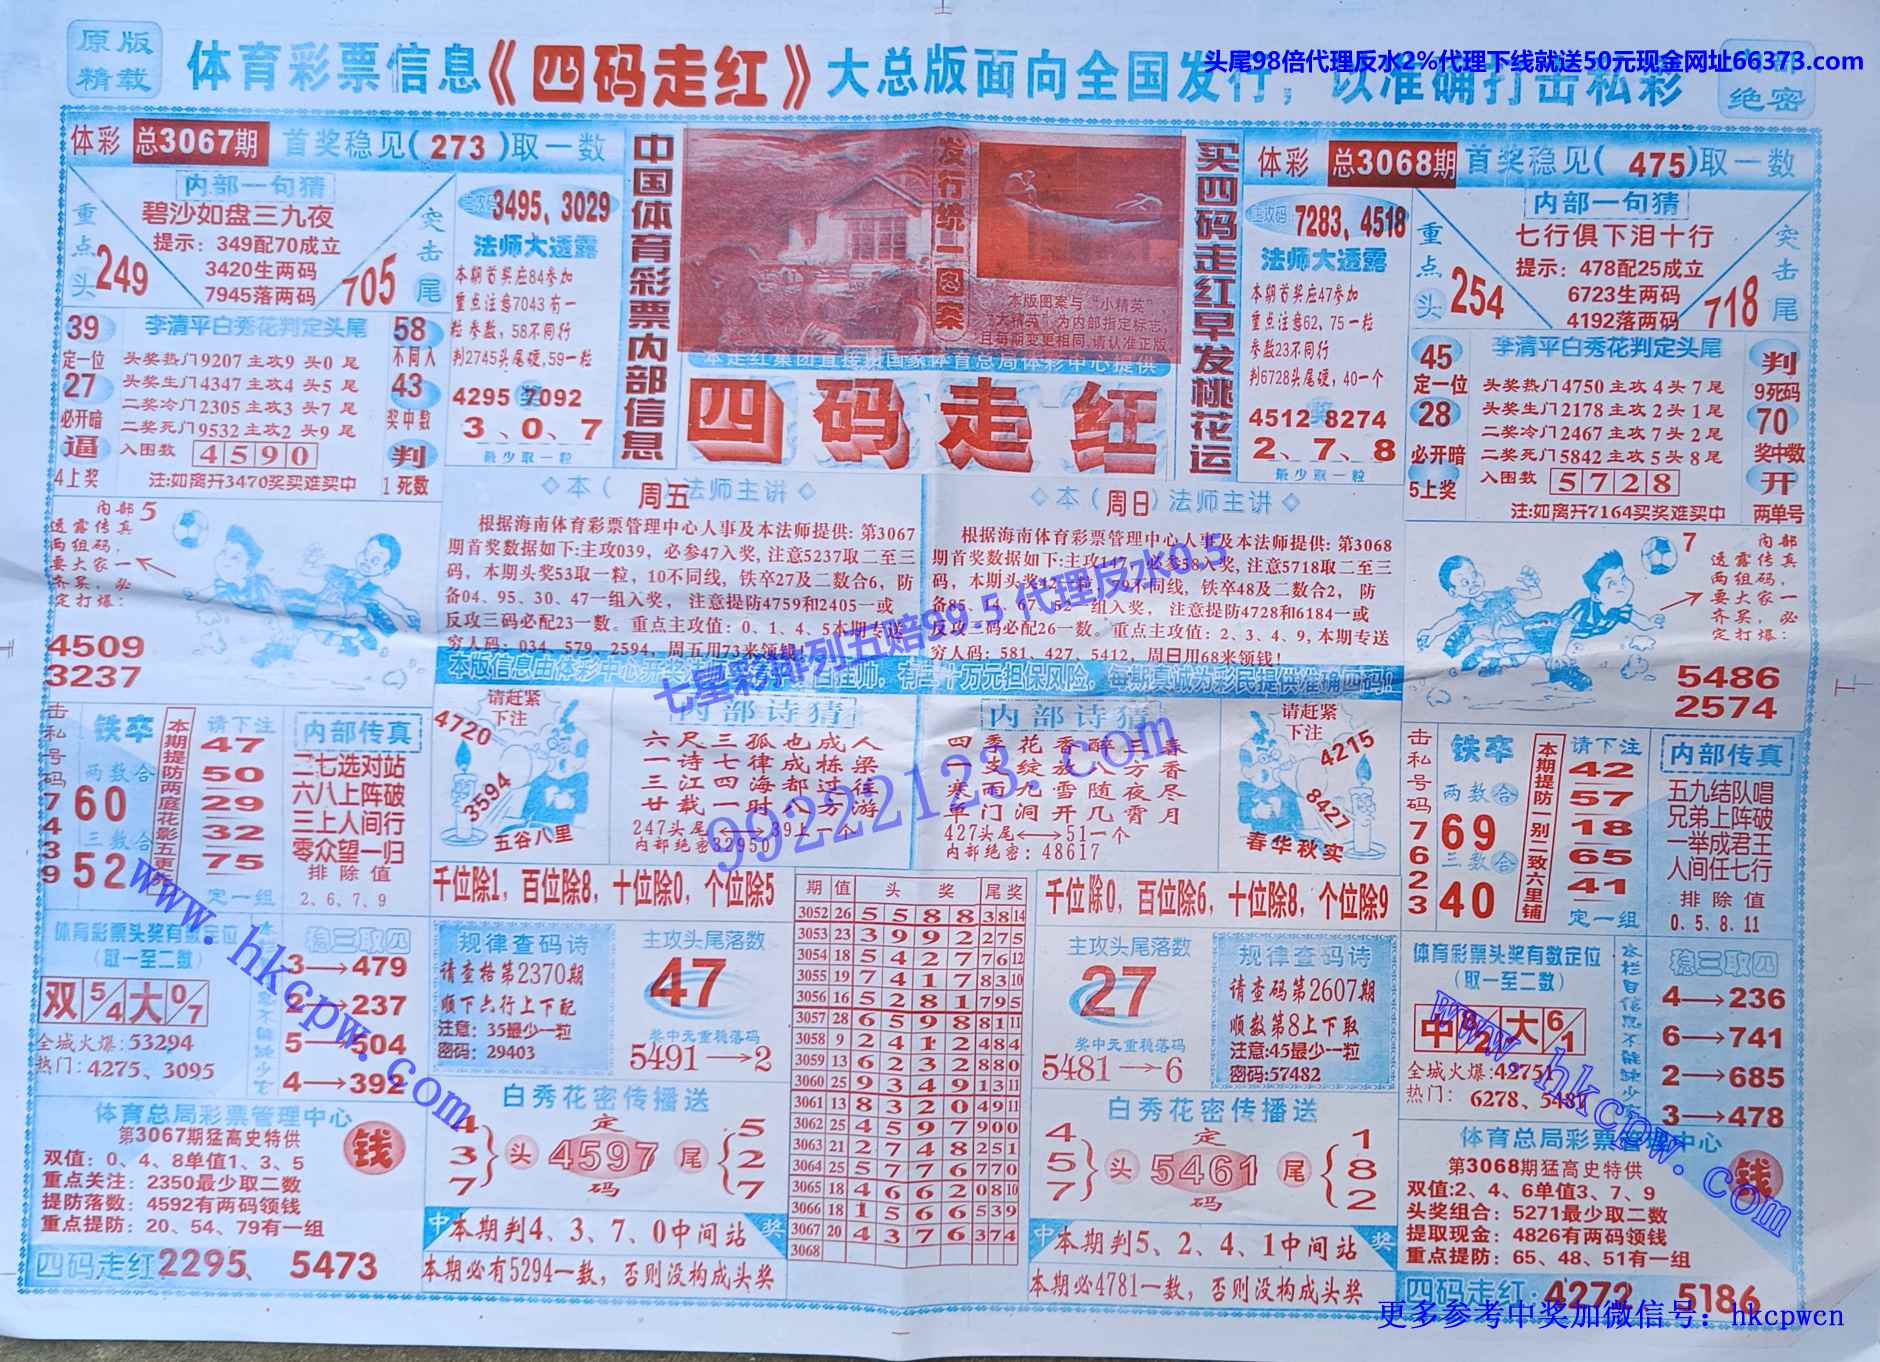 原版
精载
体育彩票信息《四码走红》大总版面向全国发行，以准确打击私彩
绝密
头尾98倍代理反水2%代理下线就送50元现金网址66373.com
体彩 总3067期 首奖稳见(273)取一数
内部一句猜
碧沙如盘三九夜
提示：349配70成立
3420生两码
7945落两码
重点头
249
突击尾
705
3495、3029
法师大透露
本期首奖应84参加
重点注意7043有一
粒参数，58不同行
判2745头尾硬，59一粒
4295 7092
3、0、7
最少取一粒
39
定一位
27
必开暗
逼
4上奖
李清平白秀花判定头尾
头奖热门9207主攻9头0尾
头奖生门4347主攻4头5尾
二奖冷门2305主攻3头7尾
二奖死门9532主攻2头9尾
入围数 4590
注：如离开3470奖买难买中
58
不同入
43
奖中数
判
1死数
中国体育彩票内部信息
发行统一图案
本版图案与“小精英”
“大精英”为内部指定标志，
且每期变更相同，请认准正版
本走红集团直接贵国家体育总局体彩中心提供
四码走红
买四码走红早发桃花运
体彩 总3068期 首奖稳见(475)取一数
内部一句猜
七行俱下泪十行
提示：478配25成立
6723生两码
4192落两码
重点头
254
突击尾
718
7283、4518
法师大透露
本期首奖应47参加
重点注意62、75一粒
参数23不同行
判6728头尾硬，40一个
4512 8274
2、7、8
最少取一粒
45
定一位
28
必开暗
5上奖
李清平白秀花判定头尾
头奖热门4750主攻4头7尾
头奖生门2178主攻2头1尾
二奖冷门2467主攻7头2尾
二奖死门5842主攻5头8尾
入围数 5728
注：如离开7164买奖难买中
判
9死码
70
奖中数
开
两单号
内部5
透露传真
两组码，
要大家一
齐买，必
定打爆：
4509
3237
◇本（周五）法师主讲◇
根据海南体育彩票管理中心人事及本法师提供：第3067
期首奖数据如下：主攻039，必参47入奖，注意5237取二至三
码，本期头奖53取一粒，10不同线，铁卒27及二数合6，防
备04、95、30、47一组入奖，注意提防4759和2405一或
反攻三码必配23一数。重点主攻值：0、1、4、5本期专送
穷人码：034、579、2594，周五用73来领钱！
◇本（周日）法师主讲◇
根据海南体育彩票管理中心人事及本法师提供：第3068
期首奖数据如下：主攻147，必参58入奖，注意5718取二至三
码，本期头奖42一粒，79不同线，铁卒48及二数合2，防
备85、14、67、52一组入奖，注意提防4728和6184一或
反攻三码必配26一数。重点主攻值：2、3、4、9，本期专送
穷人码：581、427、5412，周日用68来领钱！
七星彩排列五赔99.5 代理反水0.5
99222123.com
7 内部
透露传真
两组码，
要大家一
齐买，必
定打爆：
5486
2574
击私号码7439
铁卒
两数合
60
三数合
52
请下注
47
50
29
32
75
定一组
内部传真
二七选对站
六八上阵破
三上人间行
零众望一归
排除值
2、6、7、9
请赶紧
下注
4720
3594
五谷八里
内部诗猜
六尺三孤也成人
一诗七律成栋梁
三江四海都过往
廿载一时八方游
247头尾⟷39上一个
内部绝密32950
内部诗猜
四季花香醉三春
427头尾⟷51一个
内部绝密：48617
请赶紧
下注
4215
8427
春华秋实
击私号码7623
铁卒
两数合
69
三数合
40
本期提防一别二致六里铺
请下注
42
57
18
65
41
定一组
内部传真
五九结队唱
兄弟上阵破
一举成君王
人间任七行
排除值
0、5、8、11
千位除1，百位除8，十位除0，个位除5
千位除0，百位除6，十位除8，个位除9
体育彩票头奖有数定位
（取一至二数）
双5/4大0/7
全城火爆：53294
热门：4275、3095
稳三取四
3→479
2→237
5→504
4→392
规律查码诗
请查格第2370期
顺下六行上下配
注意：35最少一粒
密码：29403
主攻头尾落数
47
奖中无重税落码
5491→2
期 值 头奖 尾奖
3052 26 5588 3814
3053 23 3992 275
3054 18 5427 7612
3055 19 7417 8310
3056 16 5281 795
3057 28 6598 8111
3058 9 2412 484
3059 13 6232 880
3060 25 9349 1311
3061 13 8320 4911
3062 25 4597 900
3063 21 2748 251
3064 25 5776 770
3065 18 4662 0810
3066 18 1566 539
3067 20 4376 374
3068
主攻头尾落数
27
奖中无重税落码
5481→6
规律查码诗
请查码第2607期
顺数第8上下取
注意：45最少一粒
密码：57482
体育彩票头奖有数定位
（取一至二数）
大6/1
全城火爆：42751
热门：6278、5481
本栏自信息不能缺少
稳三取四
4→236
6→741
2→685
3→478
体育总局彩票管理中心
第3067期猛高史特供
双值：0、4、8单值1、3、5
重点关注：2350最少取二数
提防落数：4592有两码领钱
重点提防：20、54、79有一组
钱
四码走红2295、5473
白秀花密传播送
4
3
7
头
定
4597
码
尾
5
2
7
中 本期判4、3、7、0中间站 奖
本期必有5294一数，否则没构成头奖
白秀花密传播送
4
5
7
头
定
5461
码
尾
1
8
2
中 本期判5、2、4、1中间站 奖
本期必4781一数，否则没构成头奖
体育总局彩票管理中心
第3068期猛高史特供
双值：2、4、6单值3、7、9
头奖组合：5271最少取二数
提取现金：4826有两码领钱
重点提防：65、48、51有一组
钱
四码走红：4272 5186
www.hkcpw.com
www.hkcpw.com
更多参考中奖加微信号：hkcpwcn